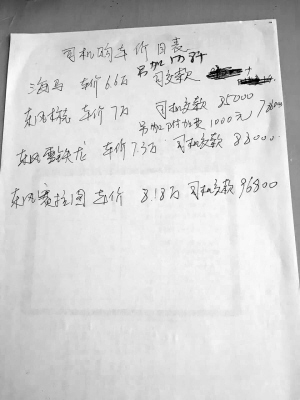 司机购车价目表
海马 车价6.6万 司机交款
东风标致 车价7万 司机交款 85000
另加附加费10000元
东风雪铁龙 车价7.3万 司机交款 88000
东风赛拉图 车价 8.18万 司机交款 96800